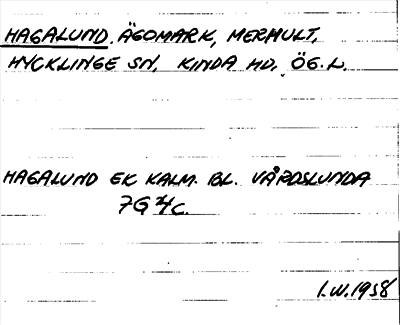 HAGALUND, ÄGOMARK, MERHULT,
HYCKLINGE SN, KINDA HD, ÖG. L.
HAGALUND EK KALM. BL. VÅRDSLUNDA
7G 4c.
I.W.1958